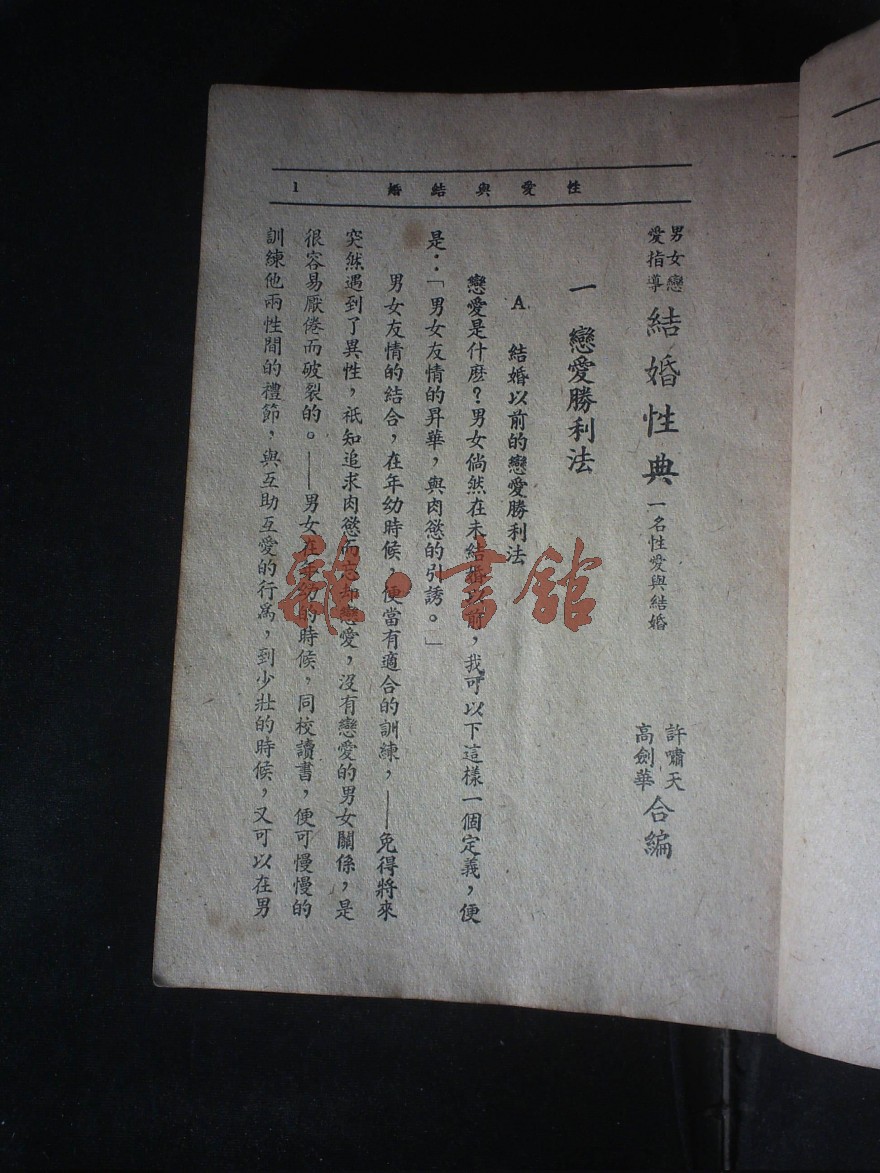 性愛與結婚 1
男女戀愛指導 結婚性典 一名性愛與結婚
許嘯天
高劍華 合編
一 戀愛勝利法
A 結婚以前的戀愛勝利法
戀愛是什麽?男女倘然在未結婚以前,我可以下這樣一個定義,便
是:「男女友情的昇華,與肉慾的引誘。」
男女友情的結合,在年幼時候,便當有適合的訓練,——免得將來
突然遇到了異性,祇知追求肉慾而忘却戀愛,沒有戀愛的男女關係,是
很容易厭倦而破裂的。——男女在年幼的時候,同校讀書,便可慢慢的
訓練他兩性間的禮節,與互助互愛的行爲,到少壯的時候,又可以在男
雜·書館